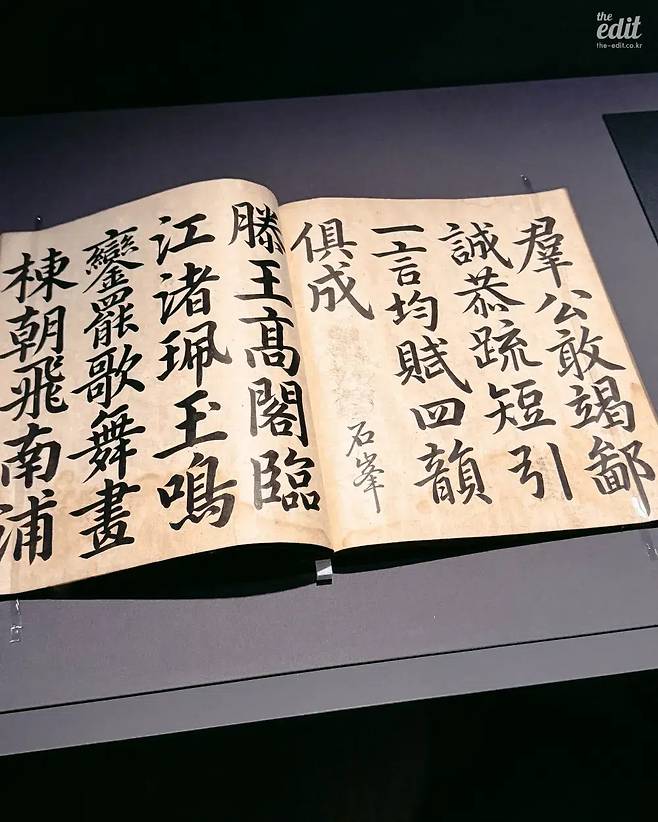 the
edit
the-edit.co.kr
羣公敢竭鄙
誠恭疏短引
一言均賦四韻
俱成
石峯
滕王高閣臨
江渚珮玉鳴
鑾罷歌舞畫
棟朝飛南浦